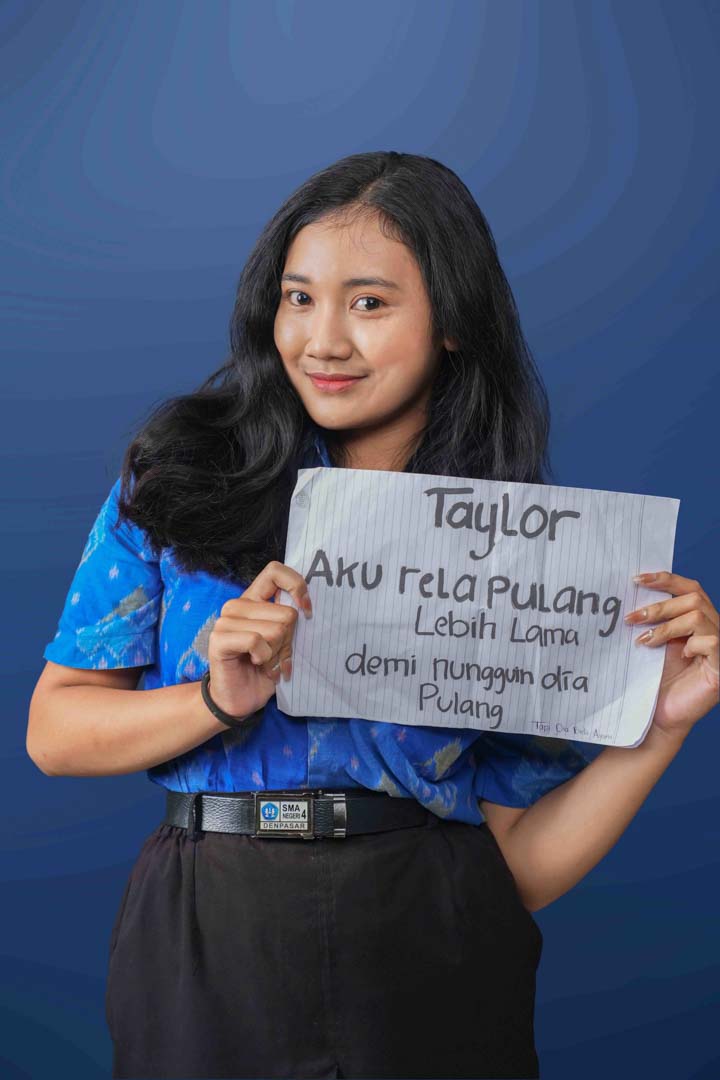 Taylor
Aku rela pulang
Lebih Lama
demi nungguin dia
Pulang
Tapi Dia
SMA
NEGERI 4
DENPASAR